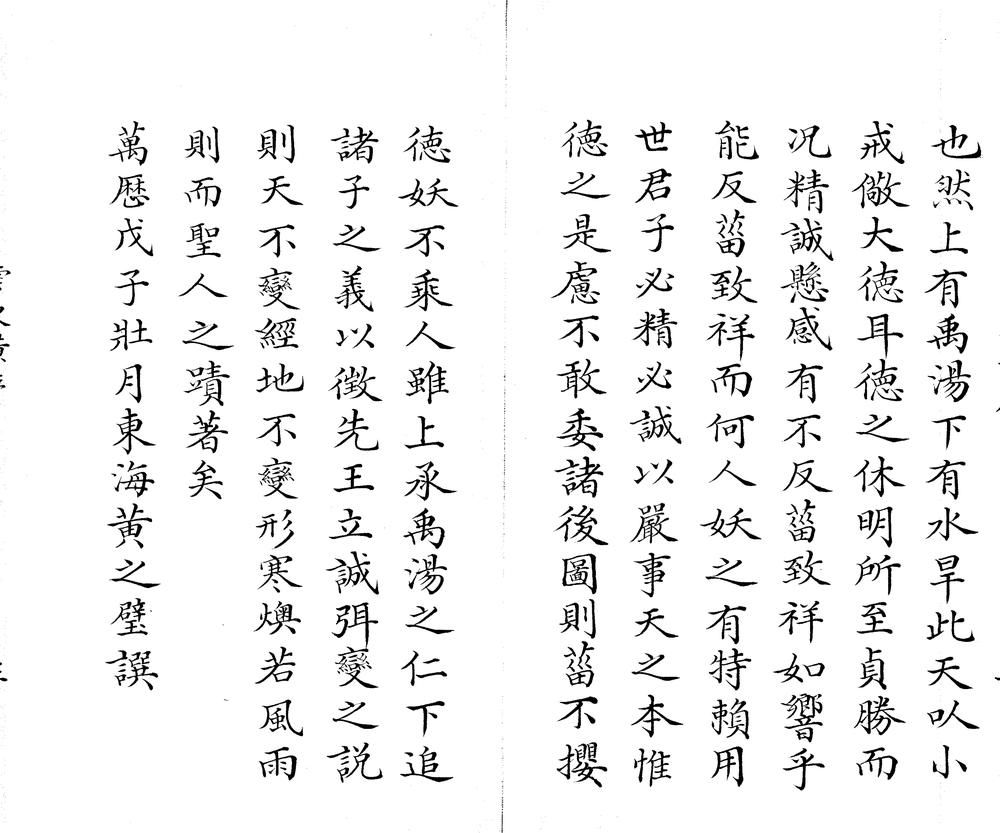 也然上有禹湯下有水旱此天以小
戒儆大徳耳徳之休明所至貞勝而
况精誠懸感有不反菑致祥如響乎
能反菑致祥而何人妖之有特賴用
世君子必精必誠以嚴事天之本惟
徳之是慮不敢委諸後圖則菑不攖
徳妖不乘人雖上承禹湯之仁下追
諸子之義以徴先王立誠弭變之説
則天不變經地不變形寒燠若風雨
則而聖人之蹟著矣
萬厯戊子壯月東海黄之璧譔